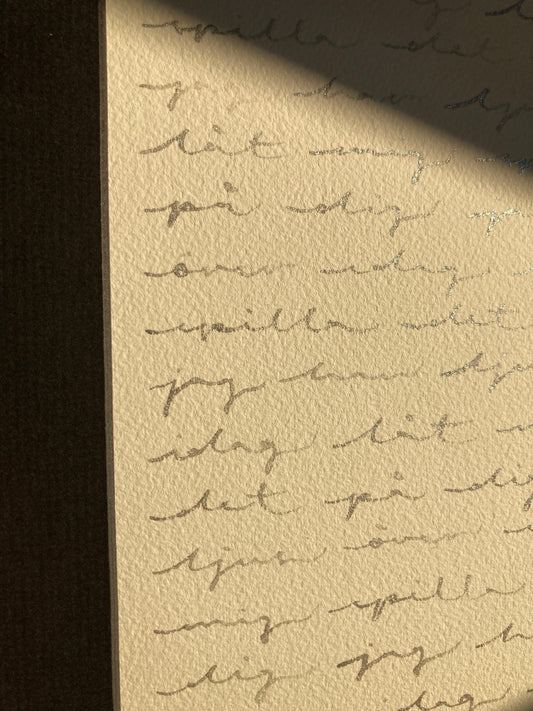 spilla det
jag har
låt mig
på dig
över idag
spilla det
jag har
idag låt
det på dig
ljus över
mig spilla
dig jag
idag